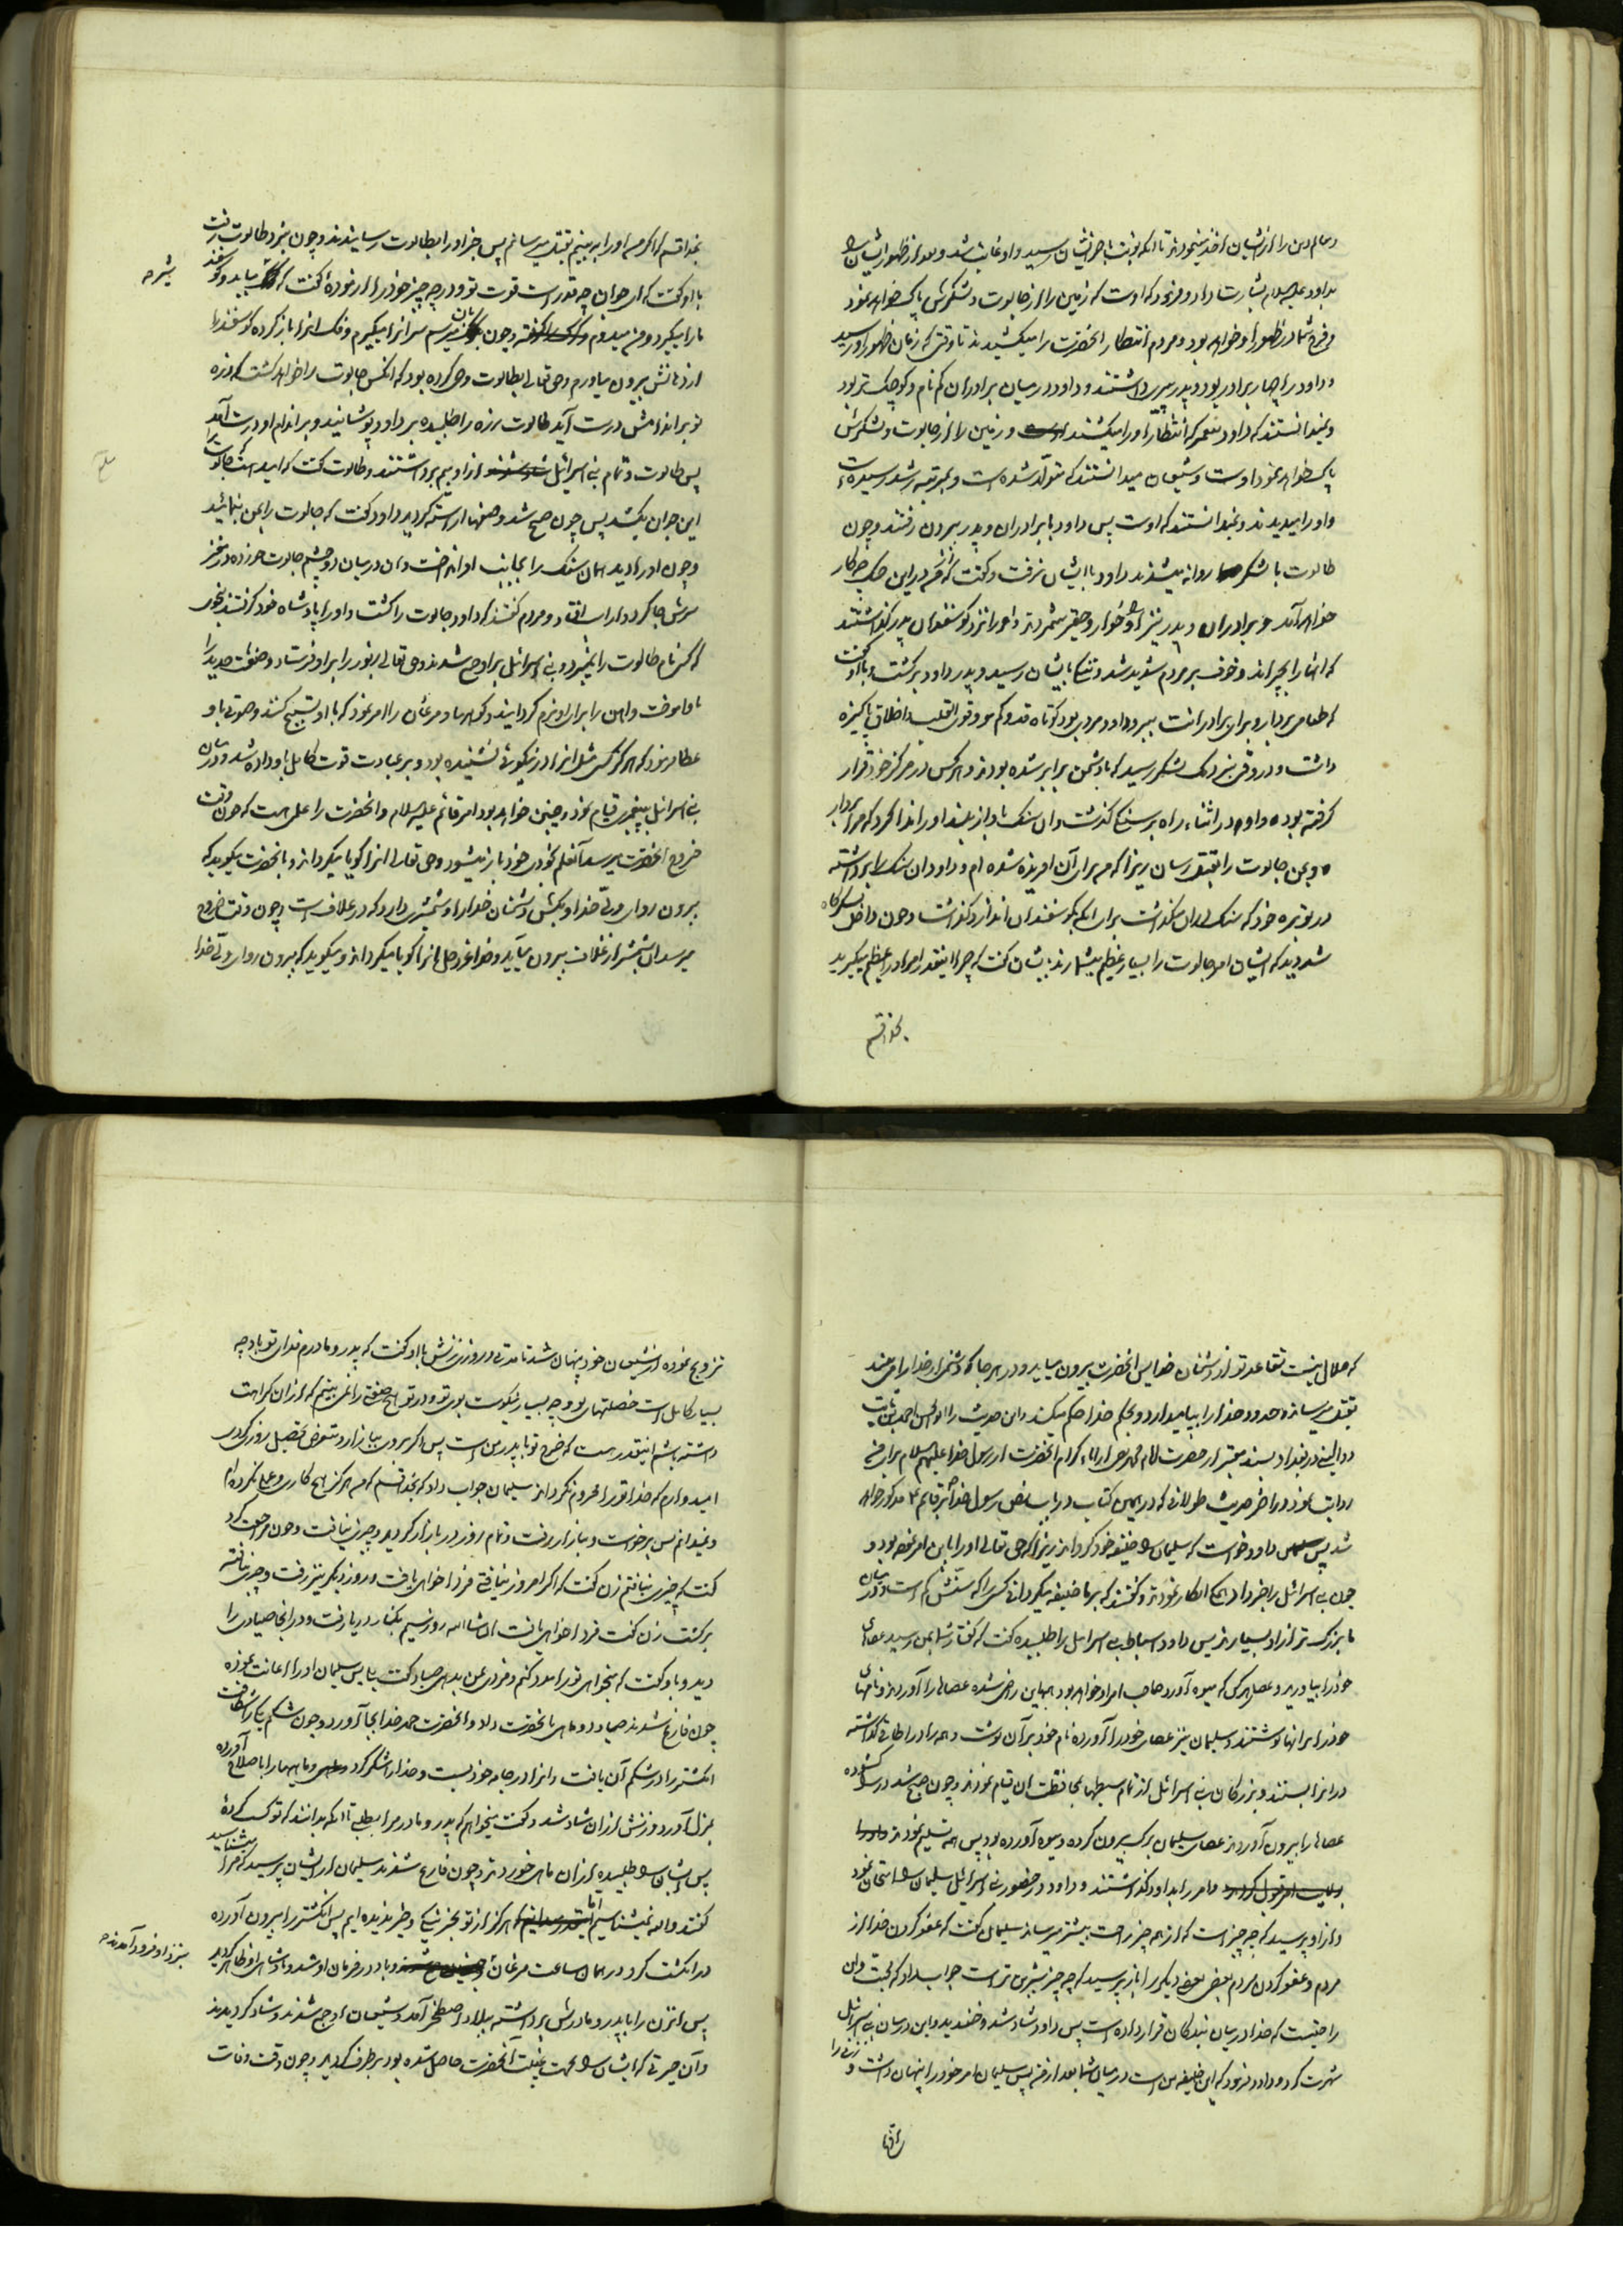 معالم دین را از ایشان اخذ مینمودند تا آنکه نوبت بآخر ایشان رسید و او غایب شد و بعد از ظهور ایشان را
بداود علیه السلام بشارت داد و فرمود که اوست که زمین را از جالوت و لشکرش پاک خواهد نمود
و فرج شما در ظهور او خواهد بود و مردم انتظار آنحضرت را میکشیدند تا وقتی که زمان ظهور او رسید
و داود را چهار برادر بود و پدر پیری داشتند و داود در میان برادران گم نام و کوچک تر بود
و نمیدانستند که داود پیغمبر که انتظار او را میکشند و زمین را از جالوت و لشکرش
پاک خواهد نمود اوست و شیعیان میدانستند که متولد شده است و بمرتبه رشد رسیده است
و او را میدیدند و نمیدانستند که اوست پس داود با برادران و پدر بیرون رفتند و چون
طالوت با لشکر روانه میشدند داود با ایشان نرفت و گفت که از من در این جنگ چه کار
خواهد آمد و برادران و پدر نیز او را خوار و حقیر شمردند و او را نزد گوسفندان پدر گذاشتند
که آنها را بچراند و خوف بر مردم شدید شد و تنگی بایشان رسید و پدر داود برگشت و باو گفت
که طعامی بردار و برای برادرانت ببر و داود مردی بود کوتاه قد و کم مو و قوی القلب و اخلاق پاکیزه
داشت و در وقتی بنزدیک لشکر رسید که با دشمن برابر شده بودند و هر کس در مرکز خود قرار
گرفته بود و داود در اثناء راه بر سنگی گذشت و آن سنگ بآواز بلند او را ندا کرد که مرا بردار
و بمن جالوت را بقتل رسان زیرا که من برای آن آفریده شده ام و داود آن سنگ را برداشته
در توبره خود که سنگ در آن میگذاشت برای آنکه بگوسفندان اندازد گذاشت و چون داخل لشکرگاه
شد دید که ایشان امر جالوت را بسیار عظیم میشمارند بایشان گفت که چرا اینقدر امر او را عظیم میگیرید
بخدا قسم
بخدا قسم که اگر من او را ببینم بقتل میرسانم پس خبر او را بطالوت رسانیدند و چون بنزد طالوت رفت
باو گفت که ای جوان چه قدر است قوت تو و در چه چیز خود را آزموده گفت که شیر میآید و گوسفند
ما را میگیرد و من میدوم و چون بآن میرسم سر آنرا میگیرم و فک آنرا باز کرده گوسفند را
از دهانش بیرون میآورم و حق تعالی بطالوت وحی کرده بود که آنکس جالوت را خواهد کشت که زره
تو بر اندامش درست آید طالوت زره را طلبیده بر داود پوشانید و بر اندام او درست آمد
پس طالوت و تمام بنی اسرائیل از او بیم برداشتند و طالوت گفت که امید است جالوت را
این جوان بکشد پس چون صبح شد و صفها آراسته گردید داود گفت که جالوت را بمن بنمائید
و چون او را دید همان سنگ را بجانب او انداخت و آن در میان دو چشم جالوت خورده در مغز
سرش جا کرد و از اسب افتاد و مردم گفتند که داود جالوت را کشت و او را پادشاه خود کردند بنحوی
که کسی نام طالوت را نمیبرد و بنی اسرائیل بر او جمع شدند و حق تعالی زبور را بر او فرستاد و صنعت حدید را
باو آموخت و آهن را برای او نرم گردانید و کوهها و مرغان را امر نمود که با او تسبیح کنند و صوتی باو
عطا فرمود که هرگز کسی مثل آنرا در نیکوئی نشنیده بود و بر عبادت قوت کامل باو داده شد و در میان
بنی اسرائیل به پیغمبری قیام نمود و چنین خواهد بود امر قائم علیه السلام و آنحضرت را علمی هست که چون وقت
خروج آنحضرت میرسد آن علم بخودی خود باز میشود و حق تعالی آنرا گویا میگرداند و بآنحضرت میگوید که
بیرون رو ای ولی خدا و بکش دشنمان خدا را و شمشیری دارد که در غلاف است و چون وقت خروج
میرسد آن شمشیر از غلاف بیرون میآید و خدا عز و جل آنرا گویا میگرداند و میگوید که بیرون رو ای ولی خدا
که حلال نیست تقاعد تو از دشمنان خدا پس آنحضرت بیرون میآید و در هر جا که دشمنان خدا را می بیند
بقتل میرساند و حدود خدا را بپا میدارد و بحکم خدا حکم میکند و این حدیث را ابو الحسن احمد بن ثابت
دوالیبی در بغداد بسند معتبر از حضرت امام محمد جواد از آباء کرام آنحضرت از رسول خدا علیهم السلام برای
روایت نمود در آخر حدیث طولانی که در همین کتاب در باب نص رسول خدا بر قائم ع مذکور خواهد
شد پس داود خواست که سلیمان را خلیفه خود گرداند زیرا که حق تعالی او را باین امر نموده بود و
چون بنی اسرائیل را خبر داد همگی انکار نمودند و گفتند که بر ما خلیفه میگردانی کسی را که سنش کم است و در میان
ما بزرگ تر از او بسیارند پس داود اسباط بنی اسرائیل را طلبیده گفت که گفتار شما بمن رسید عصاهای
خود را بیاورید و عصای هر کس که میوه آورد صاحب امر او خواهد بود همه باین راضی شده عصاها را آوردند و نامهای
خود را بر آنها نوشتند و سلیمان نیز عصای خود را آورده نام خود بر آن نوشت و همه را در اطاقی گذاشته
در آنرا بستند و بزرگان بنی اسرائیل از تمام سبطها بمحافظت آن قیام نمودند و چون صبح شد در را گشوده
عصاها را بیرون آوردند عصای سلیمان برگ بیرون کرده و میوه آورده بود پس همه تسلیم نمودند
و امر را بداود گذاشتند و داود در حضور بنی اسرائیل سلیمان را امتحان نمود
و از او پرسید که چه چیز است که از همه چیز راحت بیشتر میرساند سلیمان گفت که عفو کردن خدا از
مردم و عفو کردن مردم بعضی بعضی دیگر را باز پرسید که چه چیز شیرین تر است جواب داد که محبت و آن
راحتیست که خدا در میان بندگان قرار داده است پس داود شاد شد و خندید و این در میان بنی اسرائیل
شهرت کرد و داود فرمود که این خلیفه من است در میان شما بعد از من پس سلیمان امر خود را پنهان داشت و زنی را
تزویج نموده از شیعیان خود پنهان شد تا مدتی و روزی زنش باو گفت که پدر و مادرم فدای تو باد چه
بسیار کامل است خصلتهای تو و چه بسیار نیکوست بوی تو و در تو هیچ صفتی را نمی بینم که از آن کراهت
داشته باشم اینقدر هست که خرج تو با پدر من است پس اگر بروی ببازار و متعرض تحصیل روزی گردی
امیدوارم که خدا تو را محروم نگرداند سلیمان جواب داد که بخدا قسم که من هرگز هیچ کاری و عملی نکرده ام
و نمیدانم پس برخواست و ببازار رفت و تمام روز در بازار گردید و چیزی نیافت و چون مراجعت کرد
گفت که چیزی نیافتم زن گفت که اگر امروز نیافتی فردا خواهی یافت و روز دیگر نیز رفت و چیزی نیافته
برگشت زن گفت فردا خواهی یافت ان شاء الله روز سیم بکنار دریا رفت و در آنجا صیادی را
دید و باو گفت که میخواهی تو را مدد کنم و مزدی بمن بدهی صیاد گفت بیا پس سلیمان او را اعانت نموده
چون فارغ شدند صیاد دو ماهی بآنحضرت داد و آنحضرت حمد خدا بجا آورد و چون شکم یکی را شکافت
انگشتری در شکم آن یافت و آنرا در جامه خود بست و خدا را شکر کرد و ماهیها را باصلاح آورده
بمنزل آورد و زنش از آن شاد شد و گفت میخواهم که پدر و مادر مرا بطلبی تا آنکه بدانند که تو کسب کرده
پس ایشان را طلبیده از آن ماهی خوردند و چون فارغ شدند سلیمان از ایشان پرسید که مرا میشناسید
گفتند و الله نمیشناسیم اما هرگز از تو بجز نیکی چیزی ندیده ایم پس انگشتر را بیرون آورده
در انگشت کرد در همان ساعت مرغان و باد در فرمان او شد و پادشاهی او ظاهر گردید
بنزد او فرود آمدند
پس آنزن را با پدر و مادرش برداشته ببلاد اصطخر آمد و شیعیان او جمع شدند و شاد گردیدند
و آن حیرتی که ایشان را بجهت غیبت آنحضرت حاصل شده بود برطرف گردید و چون وقت وفات